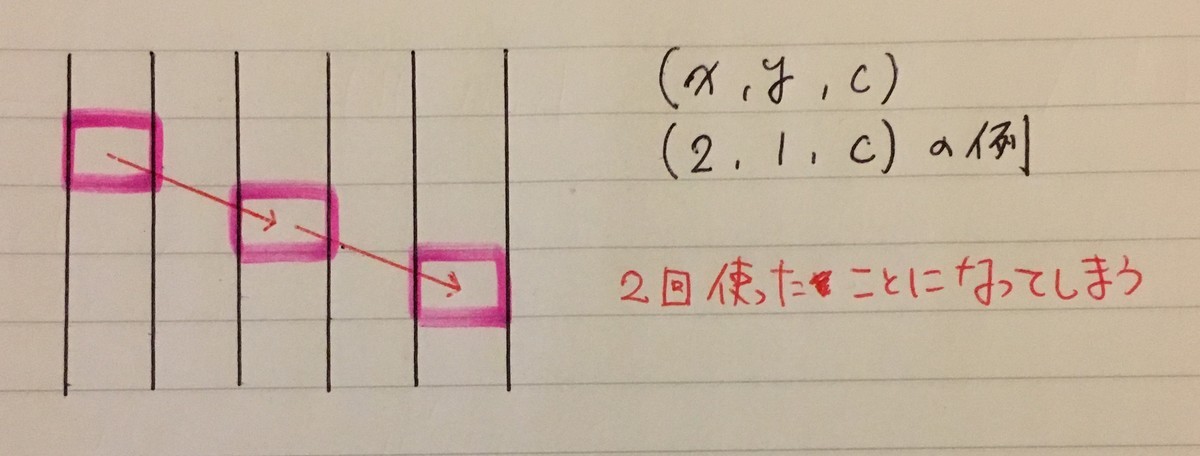 (x, y, c)
(2, 1, c) の例
2回使ったことになってしまう